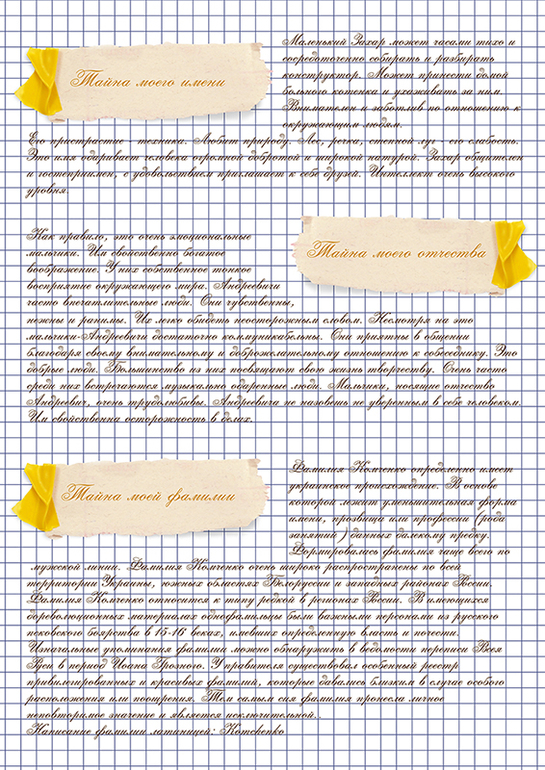 Тайна моего имени
Маленький Захар может часами тихо и
сосредоточенно собирать и разбирать
конструктор. Может принести домой
больного котенка и ухаживать за ним.
Внимателен и заботлив по отношению к
окружающим людям.
Его пристрастие - техника. Любит природу. Лес, речка, степной луг - его слабость.
Это имя одаривает человека огромной добротой и широкой натурой. Захар общителен
и гостеприимен, с удовольствием приглашает к себе друзей. Интеллект очень высокого
уровня.
Тайна моего отчества
Как правило, это очень эмоциональные
мальчики. Им свойственно богатое
воображение. У них собственное тонкое
восприятие окружающего мира. Андреевичи
часто впечатлительные люди. Они чувственны,
нежны и ранимы. Их легко обидеть неосторожным словом. Несмотря на это
мальчики-Андреевичи достаточно коммуникабельны. Они приятны в общении
благодаря своему внимательному и доброжелательному отношению к собеседнику. Это
добрые люди. Большинство из них посвящают свою жизнь творчеству. Очень часто
среди них встречаются музыкально одаренные люди. Мальчики, носящие отчество
Андреевич, очень трудолюбивы. Андреевича не назовешь не уверенным в себе человеком.
Им свойственна осторожность в делах.
Тайна моей фамилии
Фамилия Котченко определенно имеет
украинское происхождение. В основе
которой лежит уменьшительная форма
имени, прозвища или профессии (рода
занятий ) данных далекому предку.
Формировалась фамилия чаще всего по
мужской линии. Фамилия Котченко очень широко распространены по всей
территории Украины, южных областях Белоруссии и западных районах России.
Фамилия Котченко относится к типу редкой в регионах России. В имеющихся
дореволюционных материалах однофамильцы были важными персонами из русского
псковского боярства в 15-16 веках, имевших определенную власть и почести.
Изначальные упоминания фамилии можно обнаружить в ведомости переписи Всея
Руси в период Иоана Грозного. У правителя существовал особенный реестр
привилегированных и красивых фамилий, которые давались близким в случае особого
расположения или поощрения. Тем самым сия фамилия пронесла личное
неповторимое значение и является исключительной.
Написание фамилии латиницей: Kotchenko